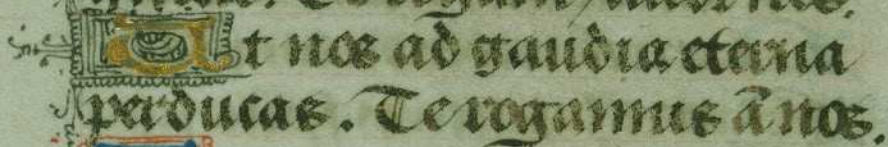 Ut nos ad gaudia eterna
perducas. Te rogamus a nos.